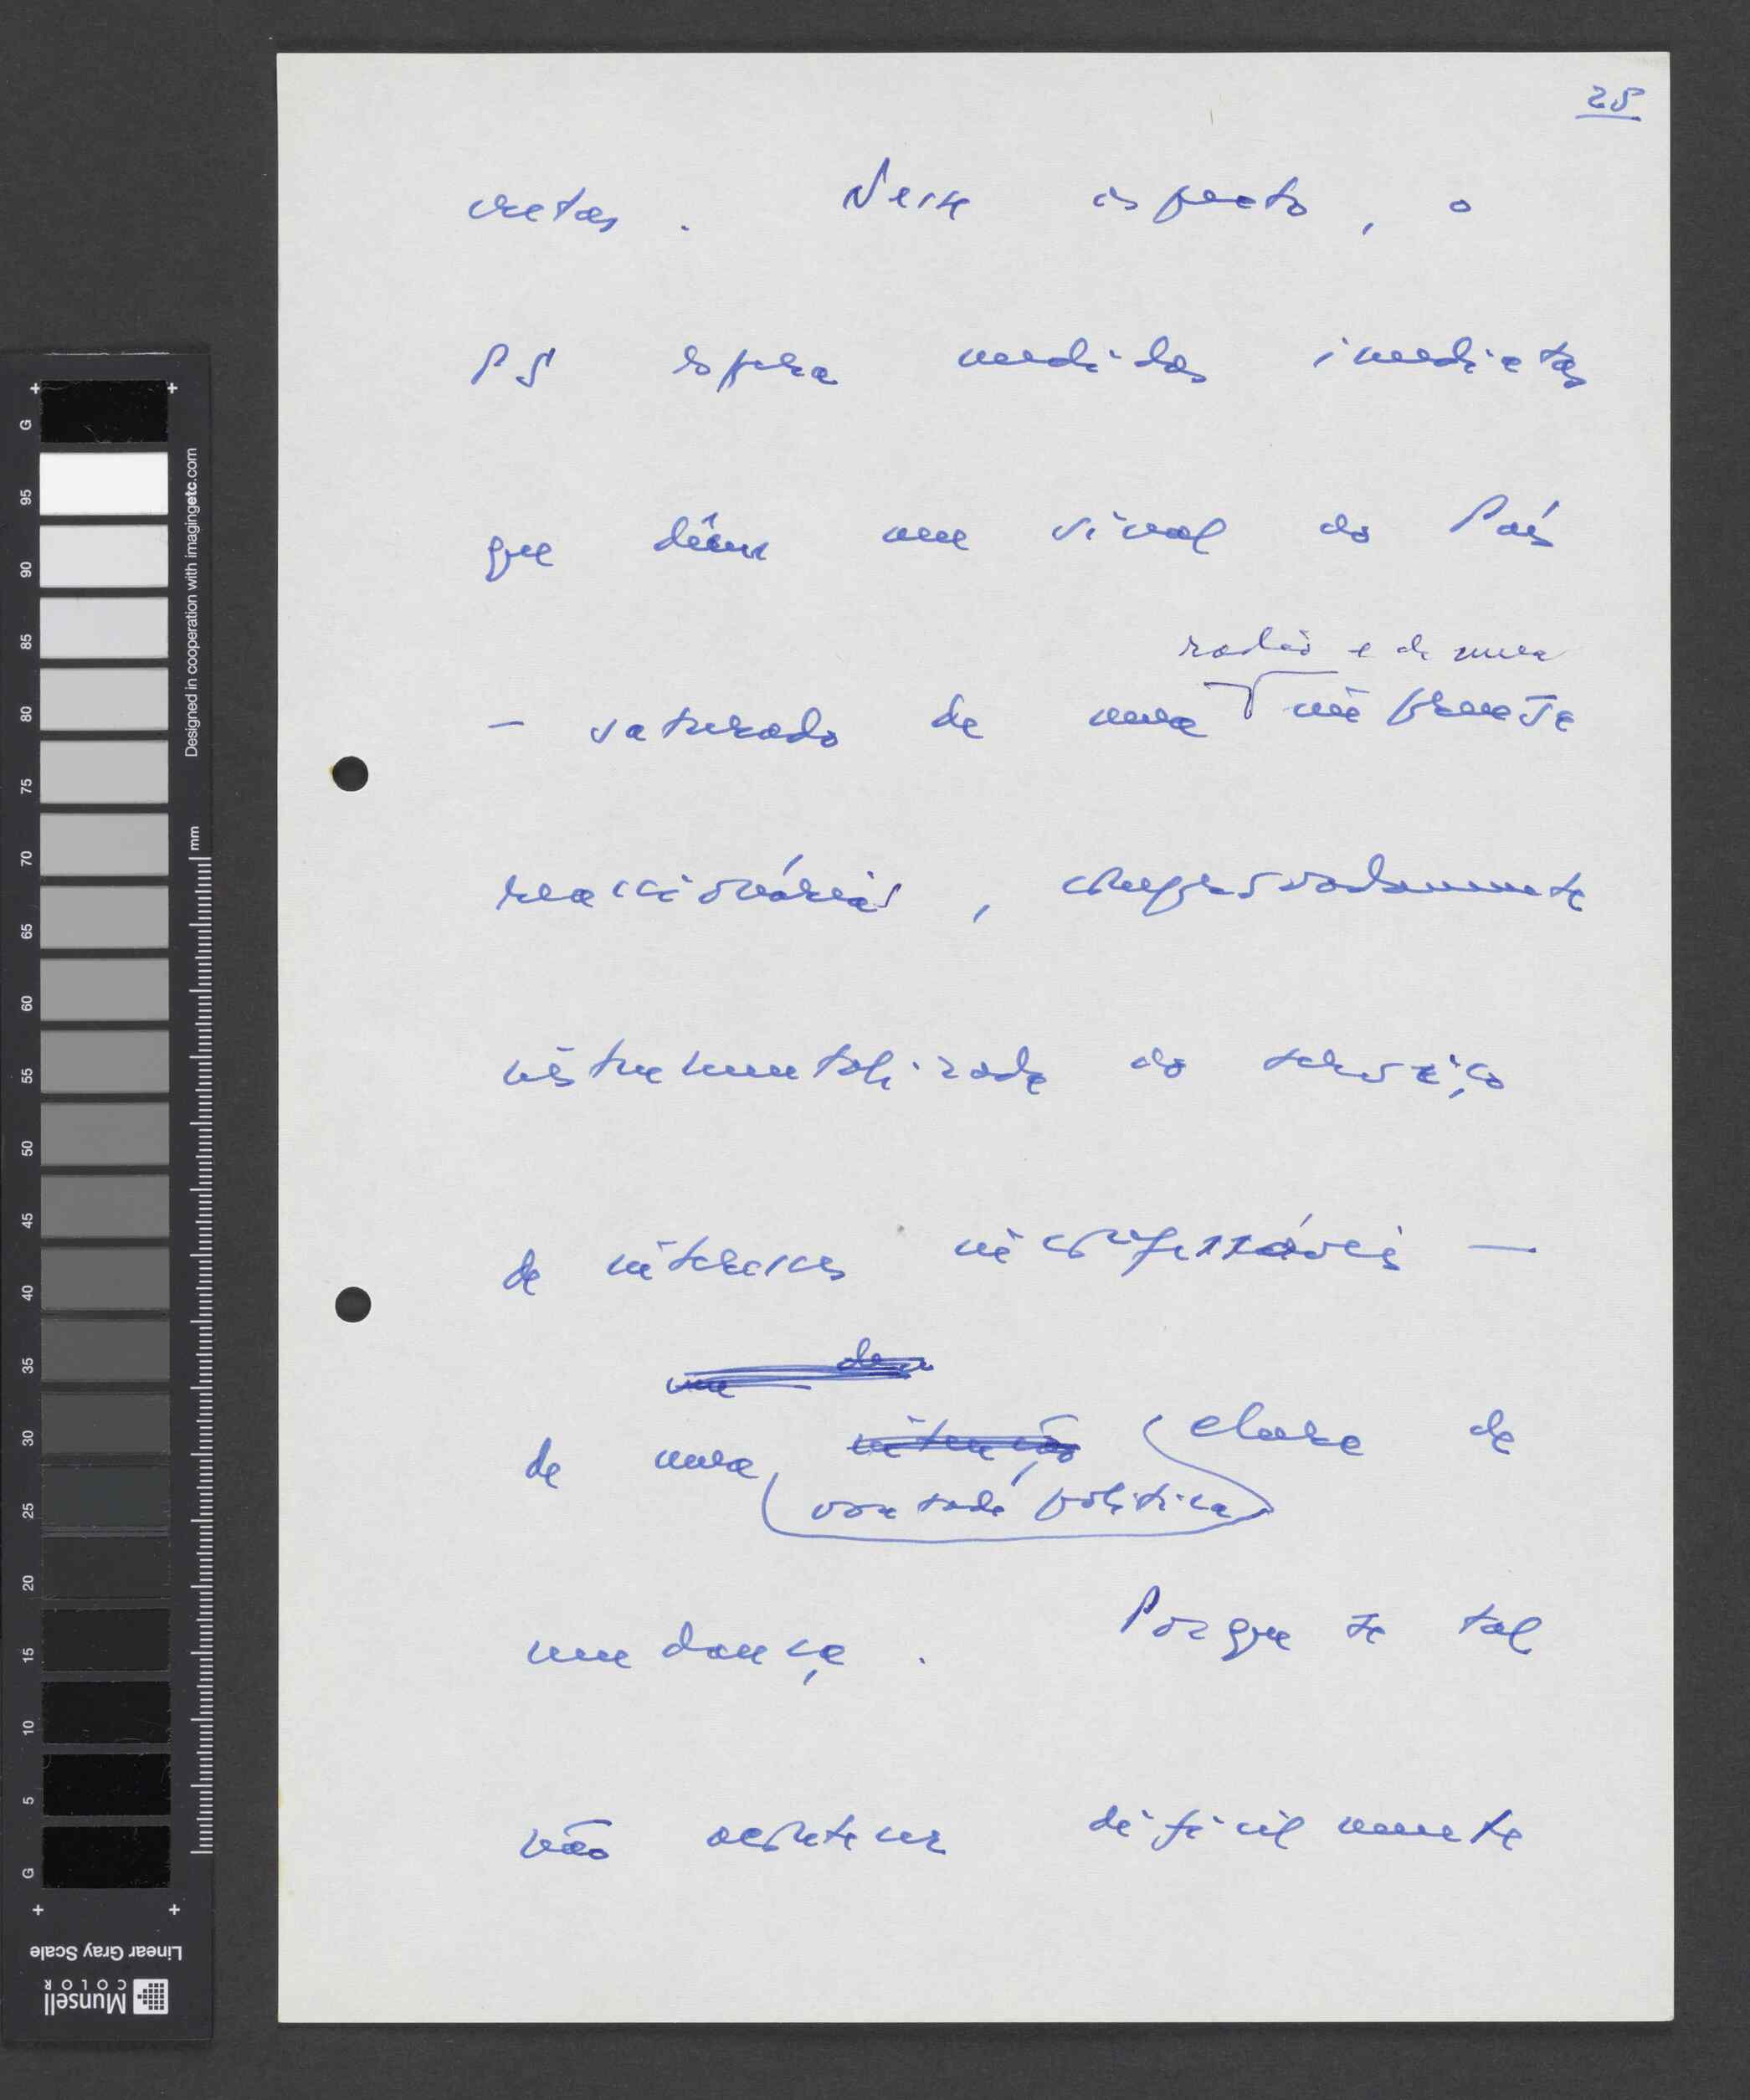 25
cretas. Nesse aspecto, o
PS espera medidas imediatas
que dêem um sinal ao País
rádio e de uma
— saturado de uma imprensa
reaccionárias, comprovadamente
instrumentalizada ao serviço
de interesses inconfessáveis —
de uma intenção clara de
vontade política
mudança. Porque se tal
não acontecer dificilmente
G
95
90
85
80
75
70
65
60
55
50
45
40
35
30
25
20
15
10
5
G
mm
Designed in cooperation with imagingetc.com
Linear Gray Scale
Munsell
COLOR